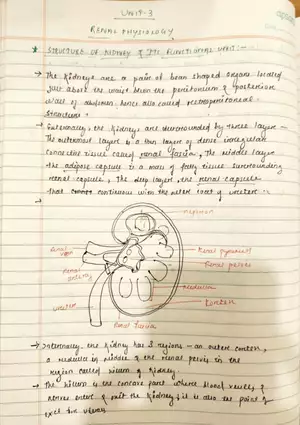 UNIT-3
RENAL PHYSIOLOGY
* STRUCTURE OF KIDNEY & ITS FUNCTIONAL UNIT:-
→ The kidneys are a pair of bean shaped organs located
just above the waist between the peritoneum & posterior
wall of abdomen hence also called retroperitoneal
structure.
→ Externally, the kidneys are surrounded by three layers-
The outermost layer is a thin layer of dense irregular
connective tissue called renal fascia, The middle layer
the adipose capsule is a mass of fatty tissue surrounding
renal capsule, The deep layer, the renal capsule
that continuous with the outer coat of ureter.
nephron
Renal vein
Renal pyramid
Renal artery
Renal pelvis
medulla
ureter
Cortex
Renal fascia
→ Internally the kidney has 3 regions - an outer cortex,
a medulla in middle & the renal pelvis in the
region called hilum of kidney.
→ The hilum is the concave part where blood vessels &
nerves enter & exit the kidney, it is also the point of
exit for ureters